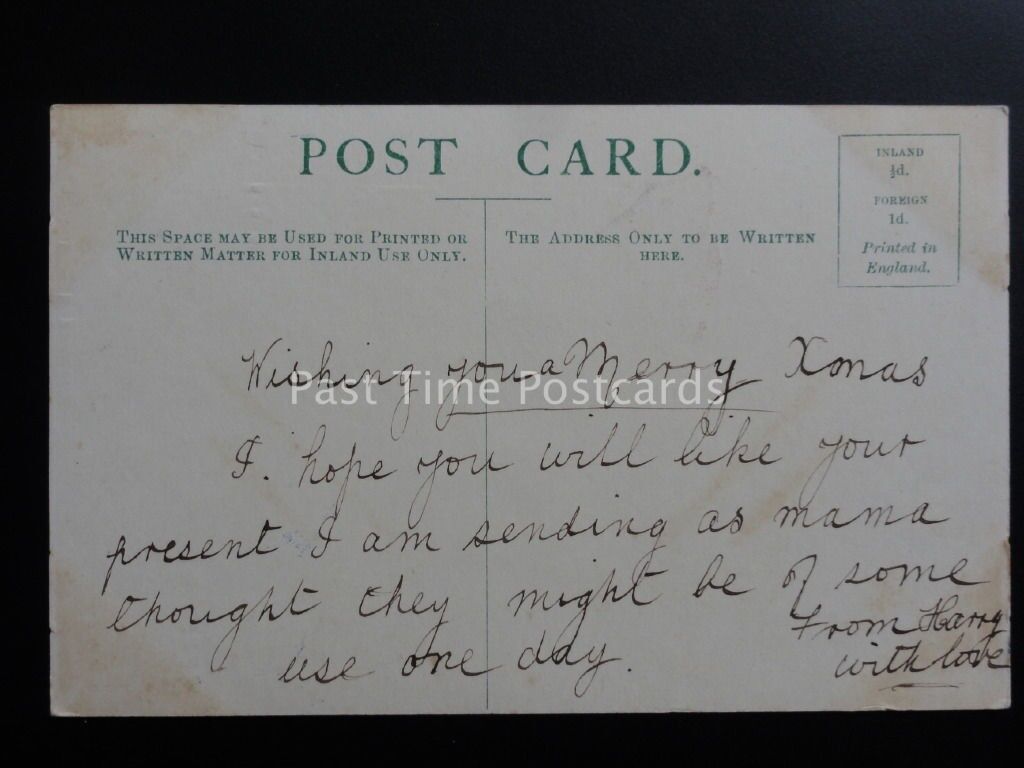 POST CARD.
INLAND
½d.
FOREIGN
1d.
Printed in
England.
THIS SPACE MAY BE USED FOR PRINTED OR
WRITTEN MATTER FOR INLAND USE ONLY.
THE ADDRESS ONLY TO BE WRITTEN
HERE.
Wishing you a Merry Xmas
Past Time Postcards
I. hope you will like your
present I am sending as mama
thought they might be of some
use one day.
From Harry
with love